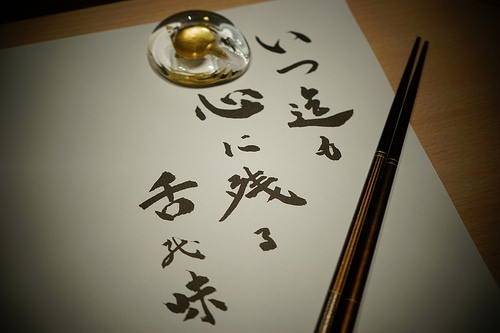 いつ迄も
心に残る
舌代味